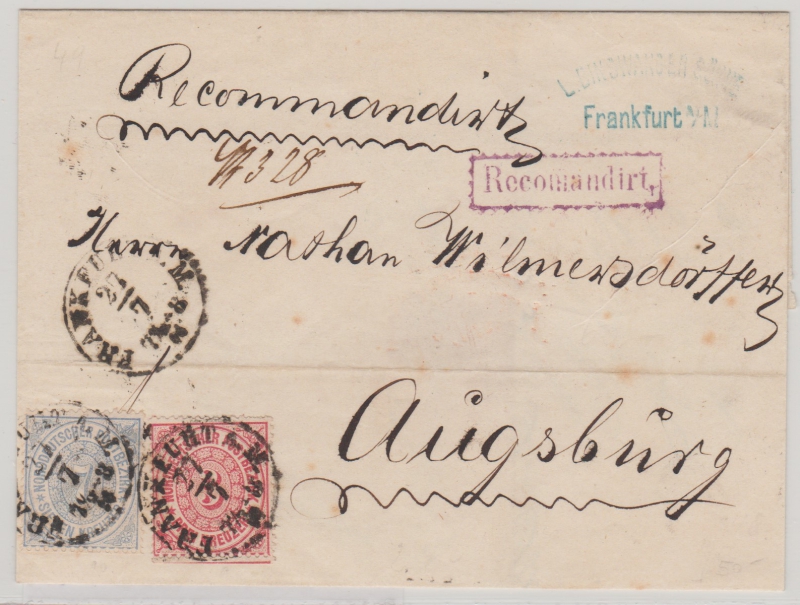 Recommandirt
Frankfurt a/M
№ 328
Recomandirt.
Herrn Nathan Wilmersdörffer
FRANKFURT A. M.
27
7
Augsburg
NORDDEUTSCHER POSTBEZIRK
7
FRANKFURT A. M.
27
7
3
KREUZER